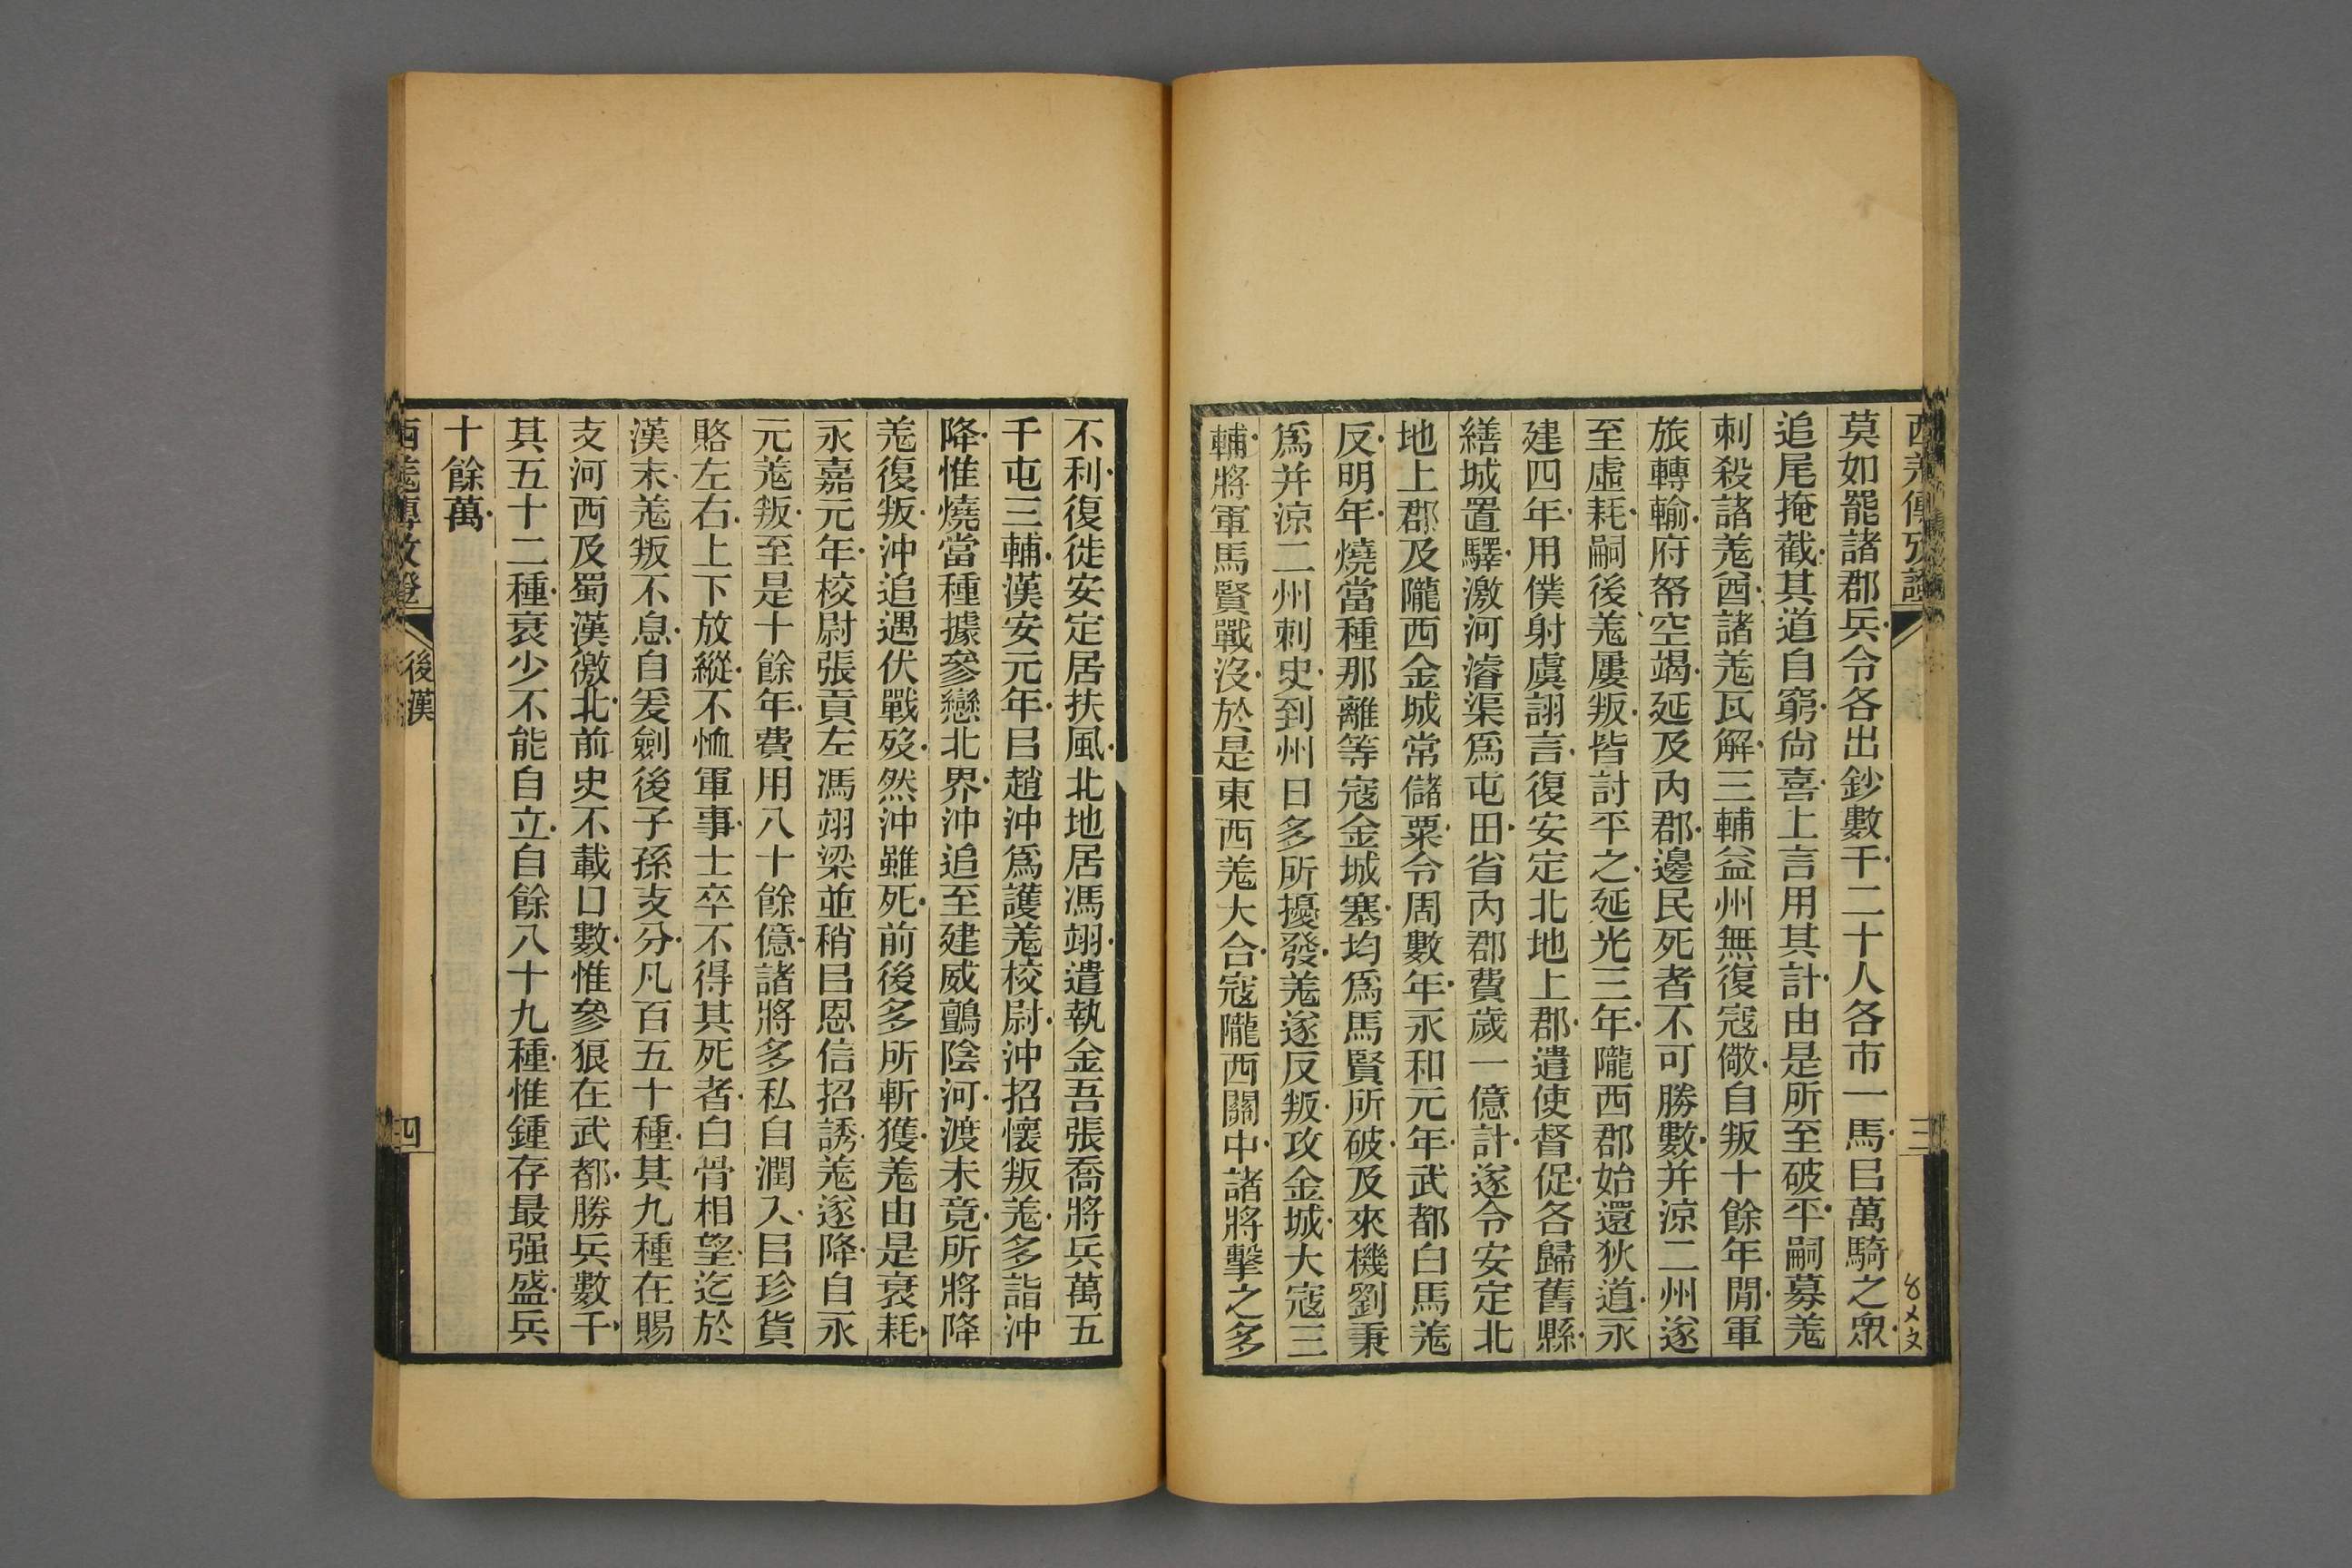 西羌傳攷證
三
莫如罷諸郡兵令各出鈔數千二十人各市一馬㠯萬騎之衆
追尾掩截其道自窮尙喜上言用其計由是所至破平嗣募羌
刺殺諸羌酋諸羌瓦解三輔益州無復寇儆自叛十餘年閒軍
旅轉輸府帑空竭延及內郡邊民死者不可勝數并涼二州遂
至虛耗嗣後羌屢叛皆討平之延光三年隴西郡始還狄道永
建四年用僕射虞詡言復安定北地上郡遣使督促各歸舊縣
繕城置驛激河濬渠爲屯田省內郡費歲一億計遂令安定北
地上郡及隴西金城常儲粟令周數年永和元年武都白馬羌
反明年燒當種那離等寇金城塞均爲馬賢所破及來機劉秉
爲并涼二州刺史到州日多所擾發羌遂反叛攻金城大寇三
輔將軍馬賢戰沒於是東西羌大合寇隴西關中諸將擊之多
不利復徙安定居扶風北地居馮翊遣執金吾張喬將兵萬五
千屯三輔漢安元年㠯趙沖爲護羌校尉沖招懷叛羌多詣沖
降惟燒當種據參戀北界沖追至建威鸇陰河渡未竟所將降
羌復叛沖追遇伏戰歿然沖雖死前後多所斬獲羌由是衰耗
永嘉元年校尉張貢左馮翊梁並稍㠯恩信招誘羌遂降自永
元羌叛至是十餘年費用八十餘億諸將多私自潤入㠯珍貨
賂左右上下放縱不恤軍事士卒不得其死者白骨相望迄於
漢末羌叛不息自爰劍後子孫支分凡百五十種其九種在賜
支河西及蜀漢徼北前史不載口數惟參狼在武都勝兵數千
其五十二種衰少不能自立自餘八十九種惟鍾存最强盛兵
十餘萬
西羌傳攷證
後漢
四